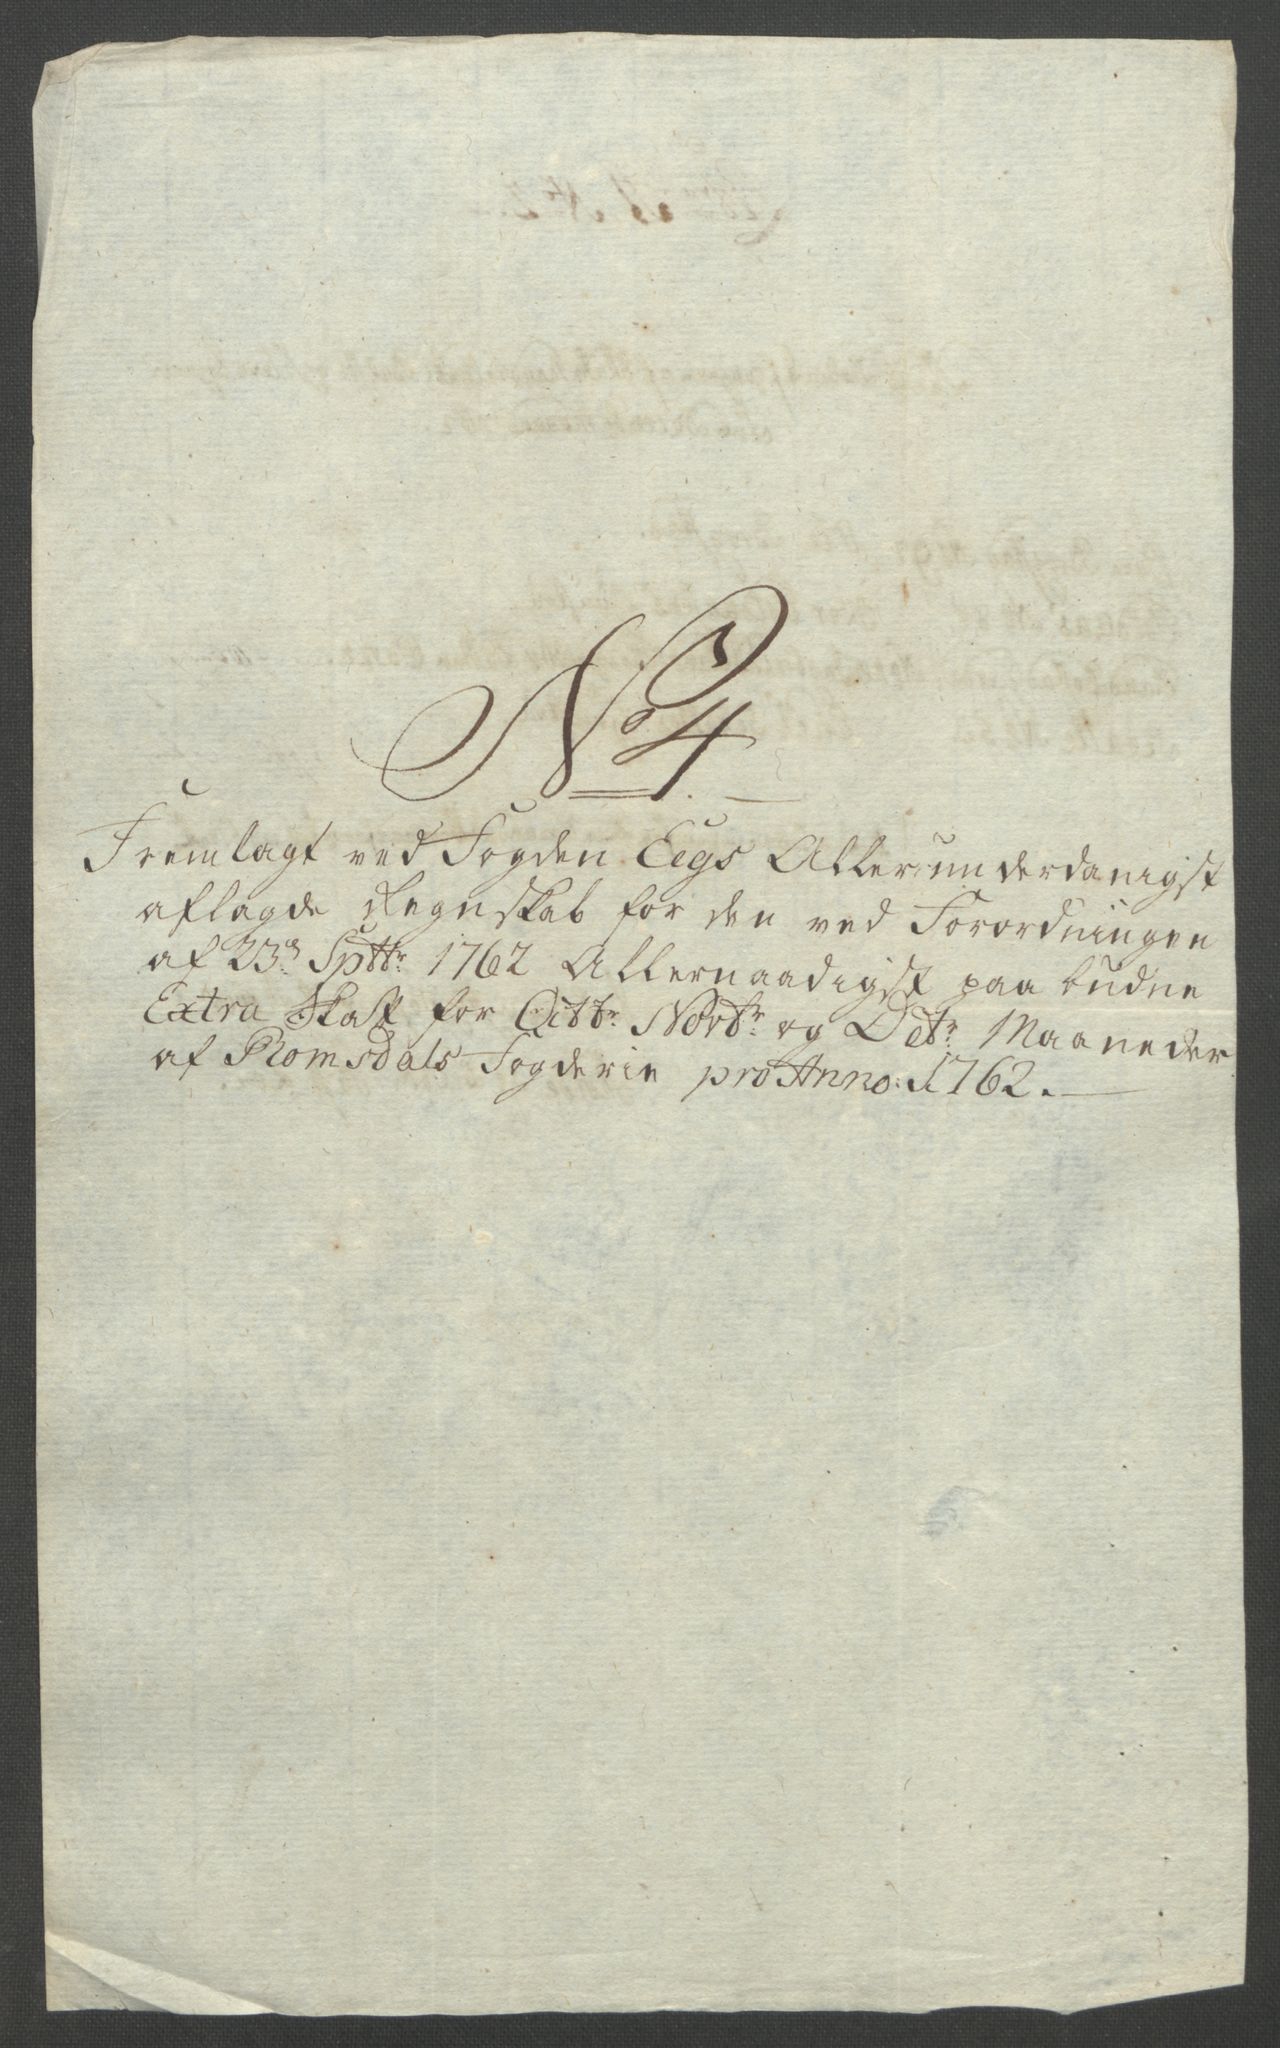 No 4
Fremlagt ved Fogden Eegs Allerunderdanigst
aflagde Regnskab for den ved Forordningen
af 23de Sptbr 1762 Allernaadigst paa budne
Extra Skatt for Octbr. Novbr. og Decbr. Maaneder
af Romsdals Fogderie pro Anno: 1762.